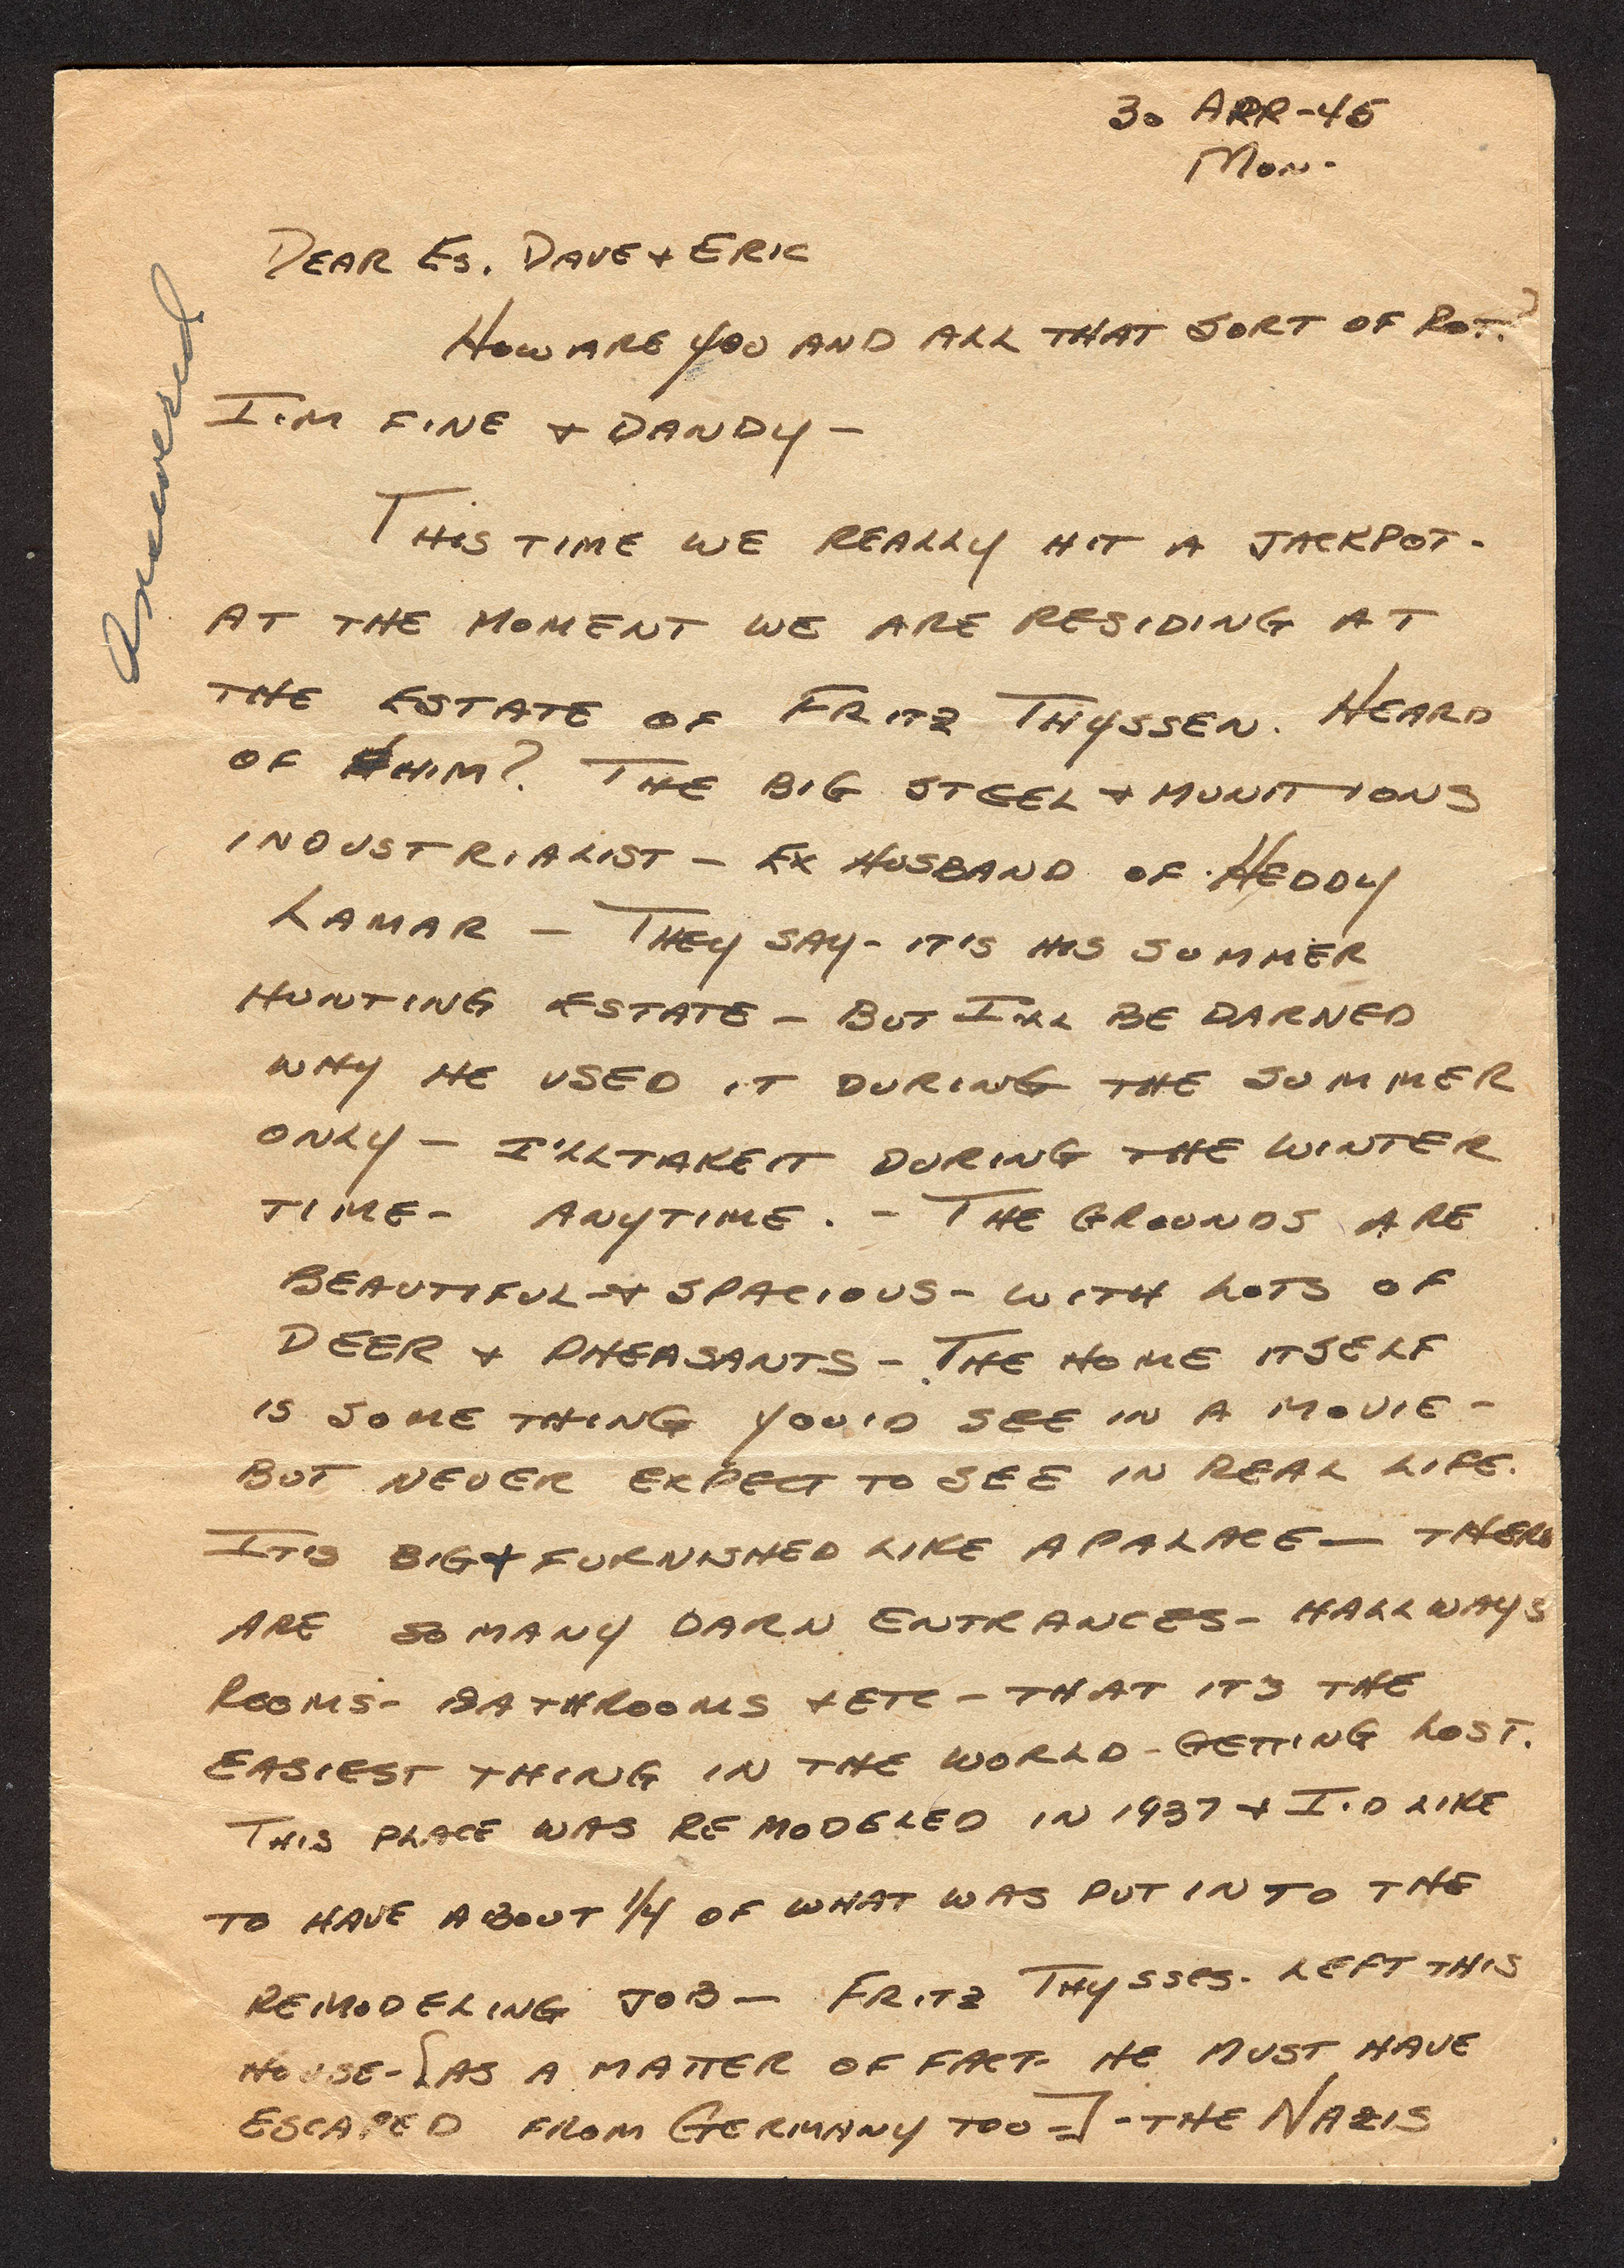 30 APR-45
MON-
DEAR ES. DAVE & ERIC
HOW ARE YOU AND ALL THAT SORT OF ROT?
I'M FINE & DANDY -
THIS TIME WE REALLY HIT A JACKPOT -
AT THE MOMENT WE ARE RESIDING AT
THE ESTATE OF FRITZ THYSSEN. HEARD
OF HIM? THE BIG STEEL & MUNITIONS
INDUSTRIALIST - EX HUSBAND OF HEDDY
LAMAR - THEY SAY - IT'S HIS SUMMER
HUNTING ESTATE - BUT I'LL BE DARNED
WHY HE USED IT DURING THE SUMMER
ONLY - I'LL TAKE IT DURING THE WINTER
TIME - ANYTIME. - THE GROUNDS ARE
BEAUTIFUL - & SPACIOUS - WITH LOTS OF
DEER & PHEASANTS - THE HOME ITSELF
IS SOME THING YOU'D SEE IN A MOVIE -
BUT NEVER EXPECT TO SEE IN REAL LIFE.
IT'S BIG & FURNISHED LIKE A PALACE - THERE
ARE SO MANY DARN ENTRANCES - HALLWAYS
ROOMS - BATHROOMS & ETC - THAT ITS THE
EASIEST THING IN THE WORLD - GETTING LOST.
THIS PLACE WAS REMODELED IN 1937 & I'D LIKE
TO HAVE ABOUT 1/4 OF WHAT WAS PUT INTO THE
REMODELING JOB - FRITZ THYSSES. LEFT THIS
HOUSE - [AS A MATTER OF FACT - HE MUST HAVE
ESCAPED FROM GERMANY TOO -] - THE NAZIS
Answered